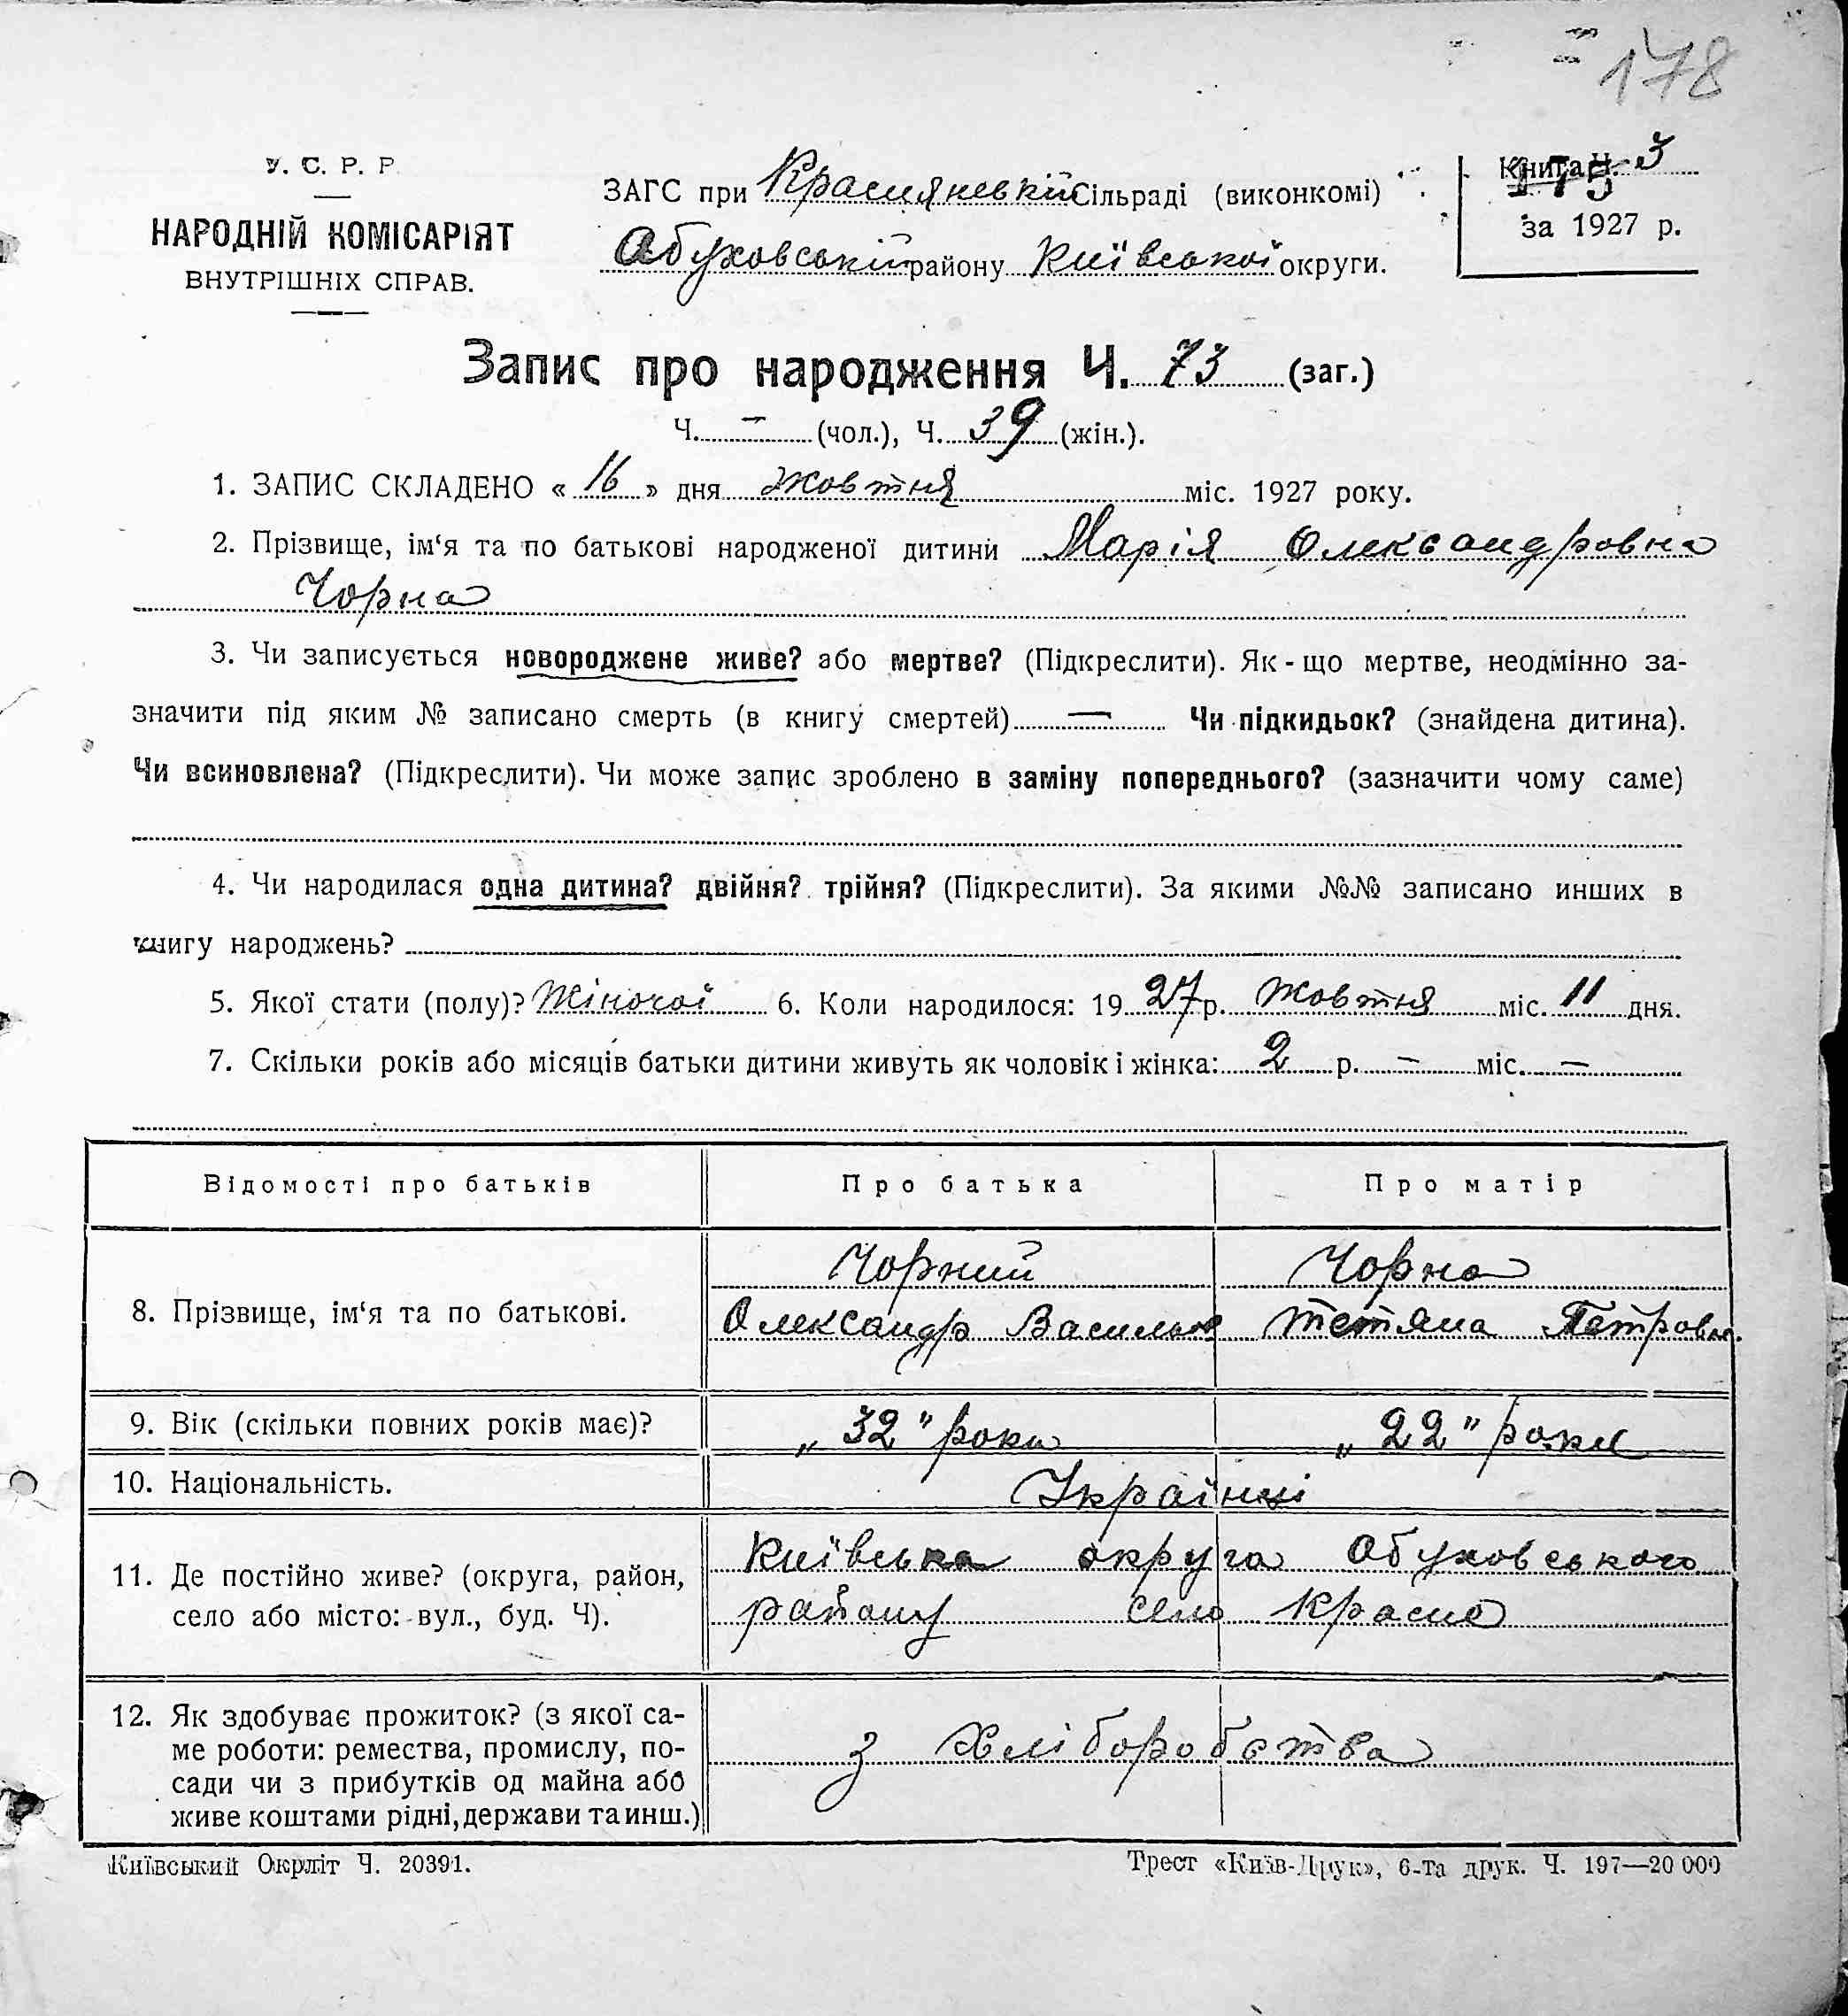 178
У. С. Р. Р.
НАРОДНІЙ КОМІСАРІЯТ
ВНУТРІШНІХ СПРАВ.
ЗАГС при Краснянській Сільраді (виконкомі)
Обуховський району Київської округи.
Книга Ч. 3
175
за 1927 р.
Запис про народження Ч. 73 (заг.)
Ч. – (чол.), Ч. 39 (жін.).
1. ЗАПИС СКЛАДЕНО « 16 » дня жовтня міс. 1927 року.
2. Прізвище, ім‘я та по батькові народженої дитини Марія Олександровна
Чорна
3. Чи записується новороджене живе? або мертве? (Підкреслити). Як-що мертве, неодмінно за-
значити під яким № записано смерть (в книгу смертей) — Чи підкидьок? (знайдена дитина).
Чи всиновлена? (Підкреслити). Чи може запис зроблено в заміну попереднього? (зазначити чому саме)
4. Чи народилася одна дитина? двійня? трійня? (Підкреслити). За якими №№ записано инших в
книгу народжень?
5. Якої стати (полу)? Жіночої 6. Коли народилося: 19 27 р. Жовтня міс. 11 дня.
7. Скільки років або місяців батьки дитини живуть як чоловік і жінка: 2 р. – міс. –
Відомості про батьків Про батька Про матір
8. Прізвище, ім‘я та по батькові.
Чорний Чорна
Олександр Васильов Тетяна Петровн.
9. Вік (скільки повних років має)? „32" роки „22" роки
10. Національність. Українці
11. Де постійно живе? (округа, район,
село або місто: вул., буд. Ч).
Київська округа Обуховського
району село Красне
12. Як здобуває прожиток? (з якої са-
ме роботи: ремества, промислу, по-
сади чи з прибутків од майна або
живе коштами рідні, держави та инш.)
з хліборобства
Київський Окрліт Ч. 20391.
Трест «Київ-Друк», 6-та друк. Ч. 197—20 000